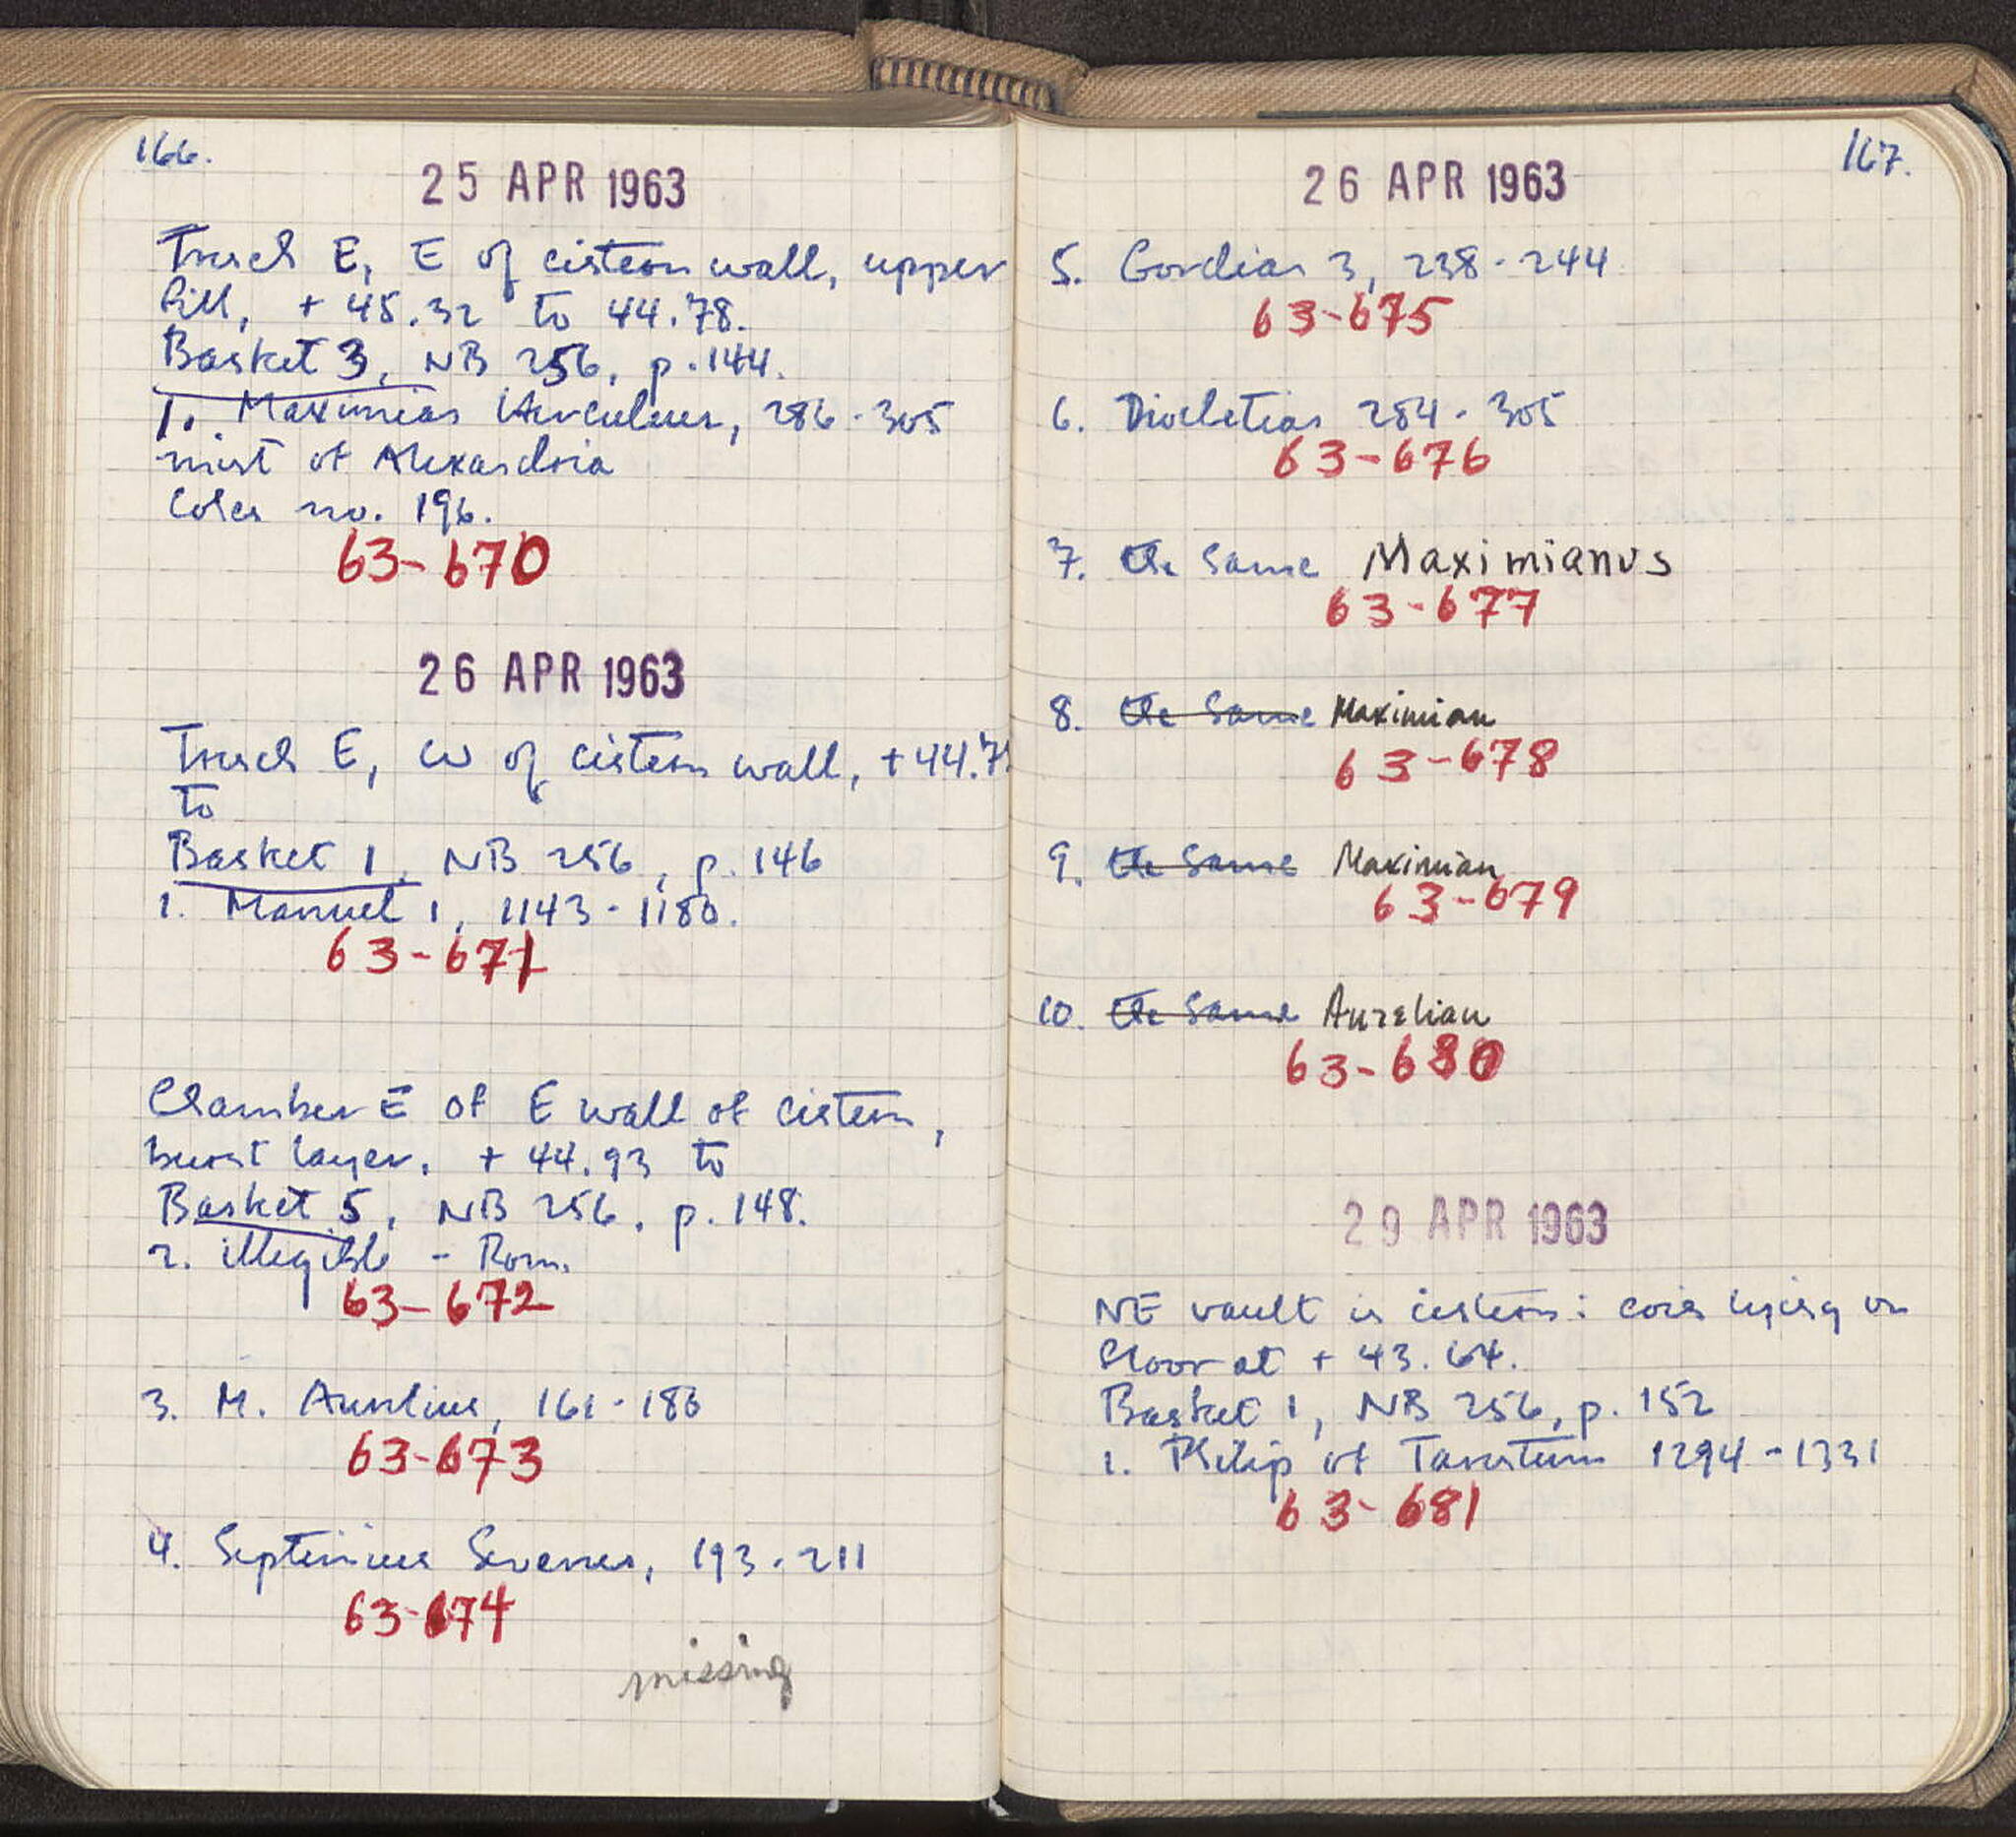 166.
25 APR 1963
Trench E, E of cistern wall, upper
fill, + 45.32 to 44.78.
Basket 3, NB 256, p. 144.
1. Maximian Herculeus, 286-305
mint of Alexandria
Cohen no. 196.
63-670
26 APR 1963
Trench E, W of cistern wall, +44.7
to
Basket 1, NB 256, p. 146
1. Manuel 1, 1143-1180.
63-671
Chamber E of E wall of cistern,
burnt layer. + 44.93 to
Basket 5, NB 256, p. 148.
2. illegible - Rom.
63-672
3. M. Aurelius, 161-180
63-673
4. Septimius Severus, 193-211
63-674
missing
167.
26 APR 1963
5. Gordian 3, 238-244
63-675
6. Diocletian 284-305
63-676
7. the same Maximianus
63-677
8. the same Maximian
63-678
9. the same Maximian
63-679
10. the same Aurelian
63-680
29 APR 1963
NE vault in cistern: coin lying on
floor at + 43.64.
Basket 1, NB 256, p. 152
1. Philip of Tarentum 1294-1331
63-681